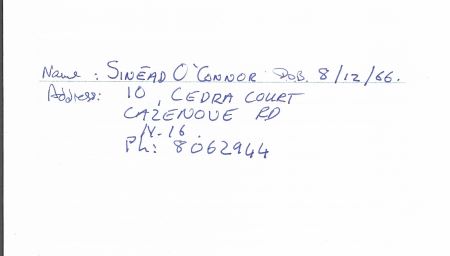 Name : SINÉAD O'CONNOR DOB. 8/12/66.
Address: 10, CEDRA COURT
CAZENOUE RD
N-16.
Ph: 8062944